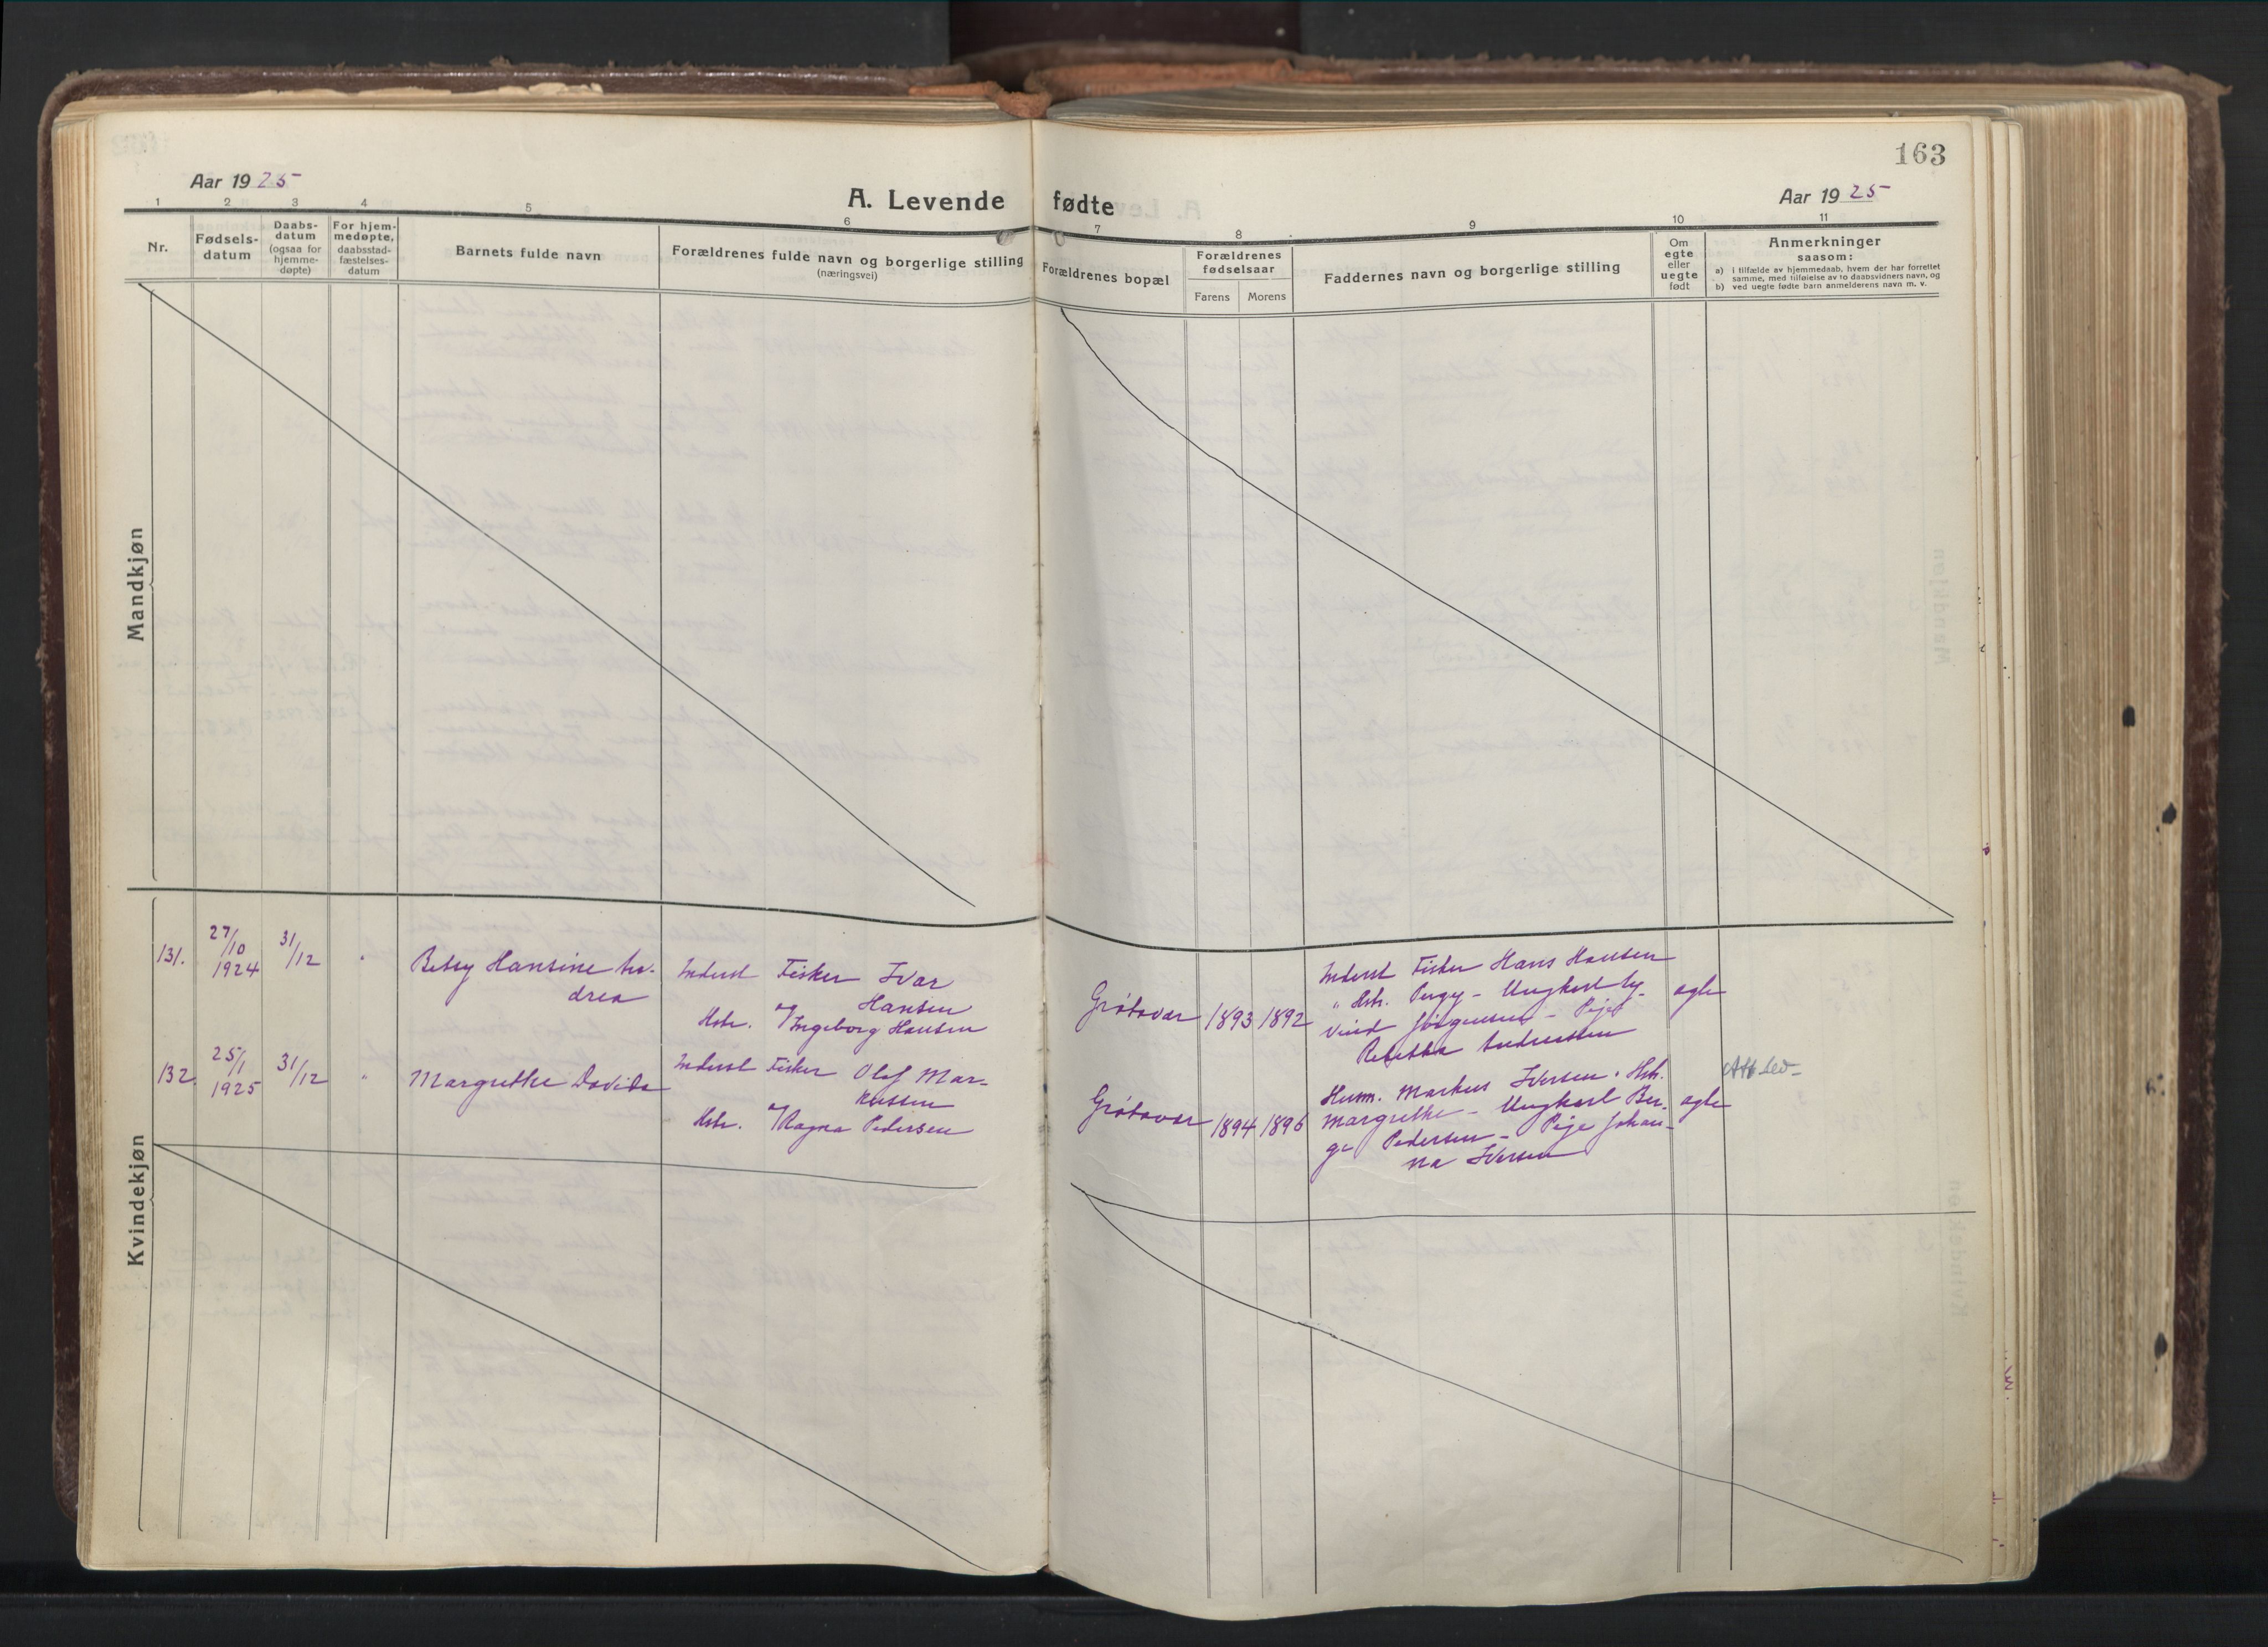 163
Aar 1925
A. Levende fødte
Aar 1925
1 2 3 4 5 6 7 8 9 10 11
Nr.
Fødsels-
datum
Daabs-
datum
(ogsaa for
hjemme-
døpte)
For hjem-
medøpte,
daabsstad-
fæstelses-
datum
Barnets fulde navn
Forældrenes fulde navn og borgerlige stilling
(næringsvei)
Forældrenes bopæl
Forældrenes
fødselsaar
Farens Morens
Faddernes navn og borgerlige stilling
Om
egte
eller
uegte
født
Anmerkninger
saasom:
a) i tilfælde av hjemmedaab, hvem der har forrettet
samme, med tilføielse av to daabsvidners navn, og
b) ved uegte fødte barn anmelderens navn m. v.
Mandkjøn
Kvindekjøn
131.
27/10
1924
31/12
"
Betsy Hansine An-
drea
Inderst Fisker Ivar
Hansen
Hstr. Ingeborg Hansen
Grøtavær
1893
1892
Inderst Fisker Hans Hansen
" Hstr. Pergy - Ungkarl Ey-
vind Jørgensen - Pige
Rebekka Andreassen
egte
132.
25/1
1925
31/12
"
Margrethe Davida
Inderst Fisker Olaf Mar-
kussen
Hstr. Ragna Pedersen
Grøtavær
1894
1896
Husm. Markus Iversen. Hstr.
Margrethe - Ungkarl Bir-
ger Pedersen - Pige Johan-
na Iversen
egte
Att. sed.